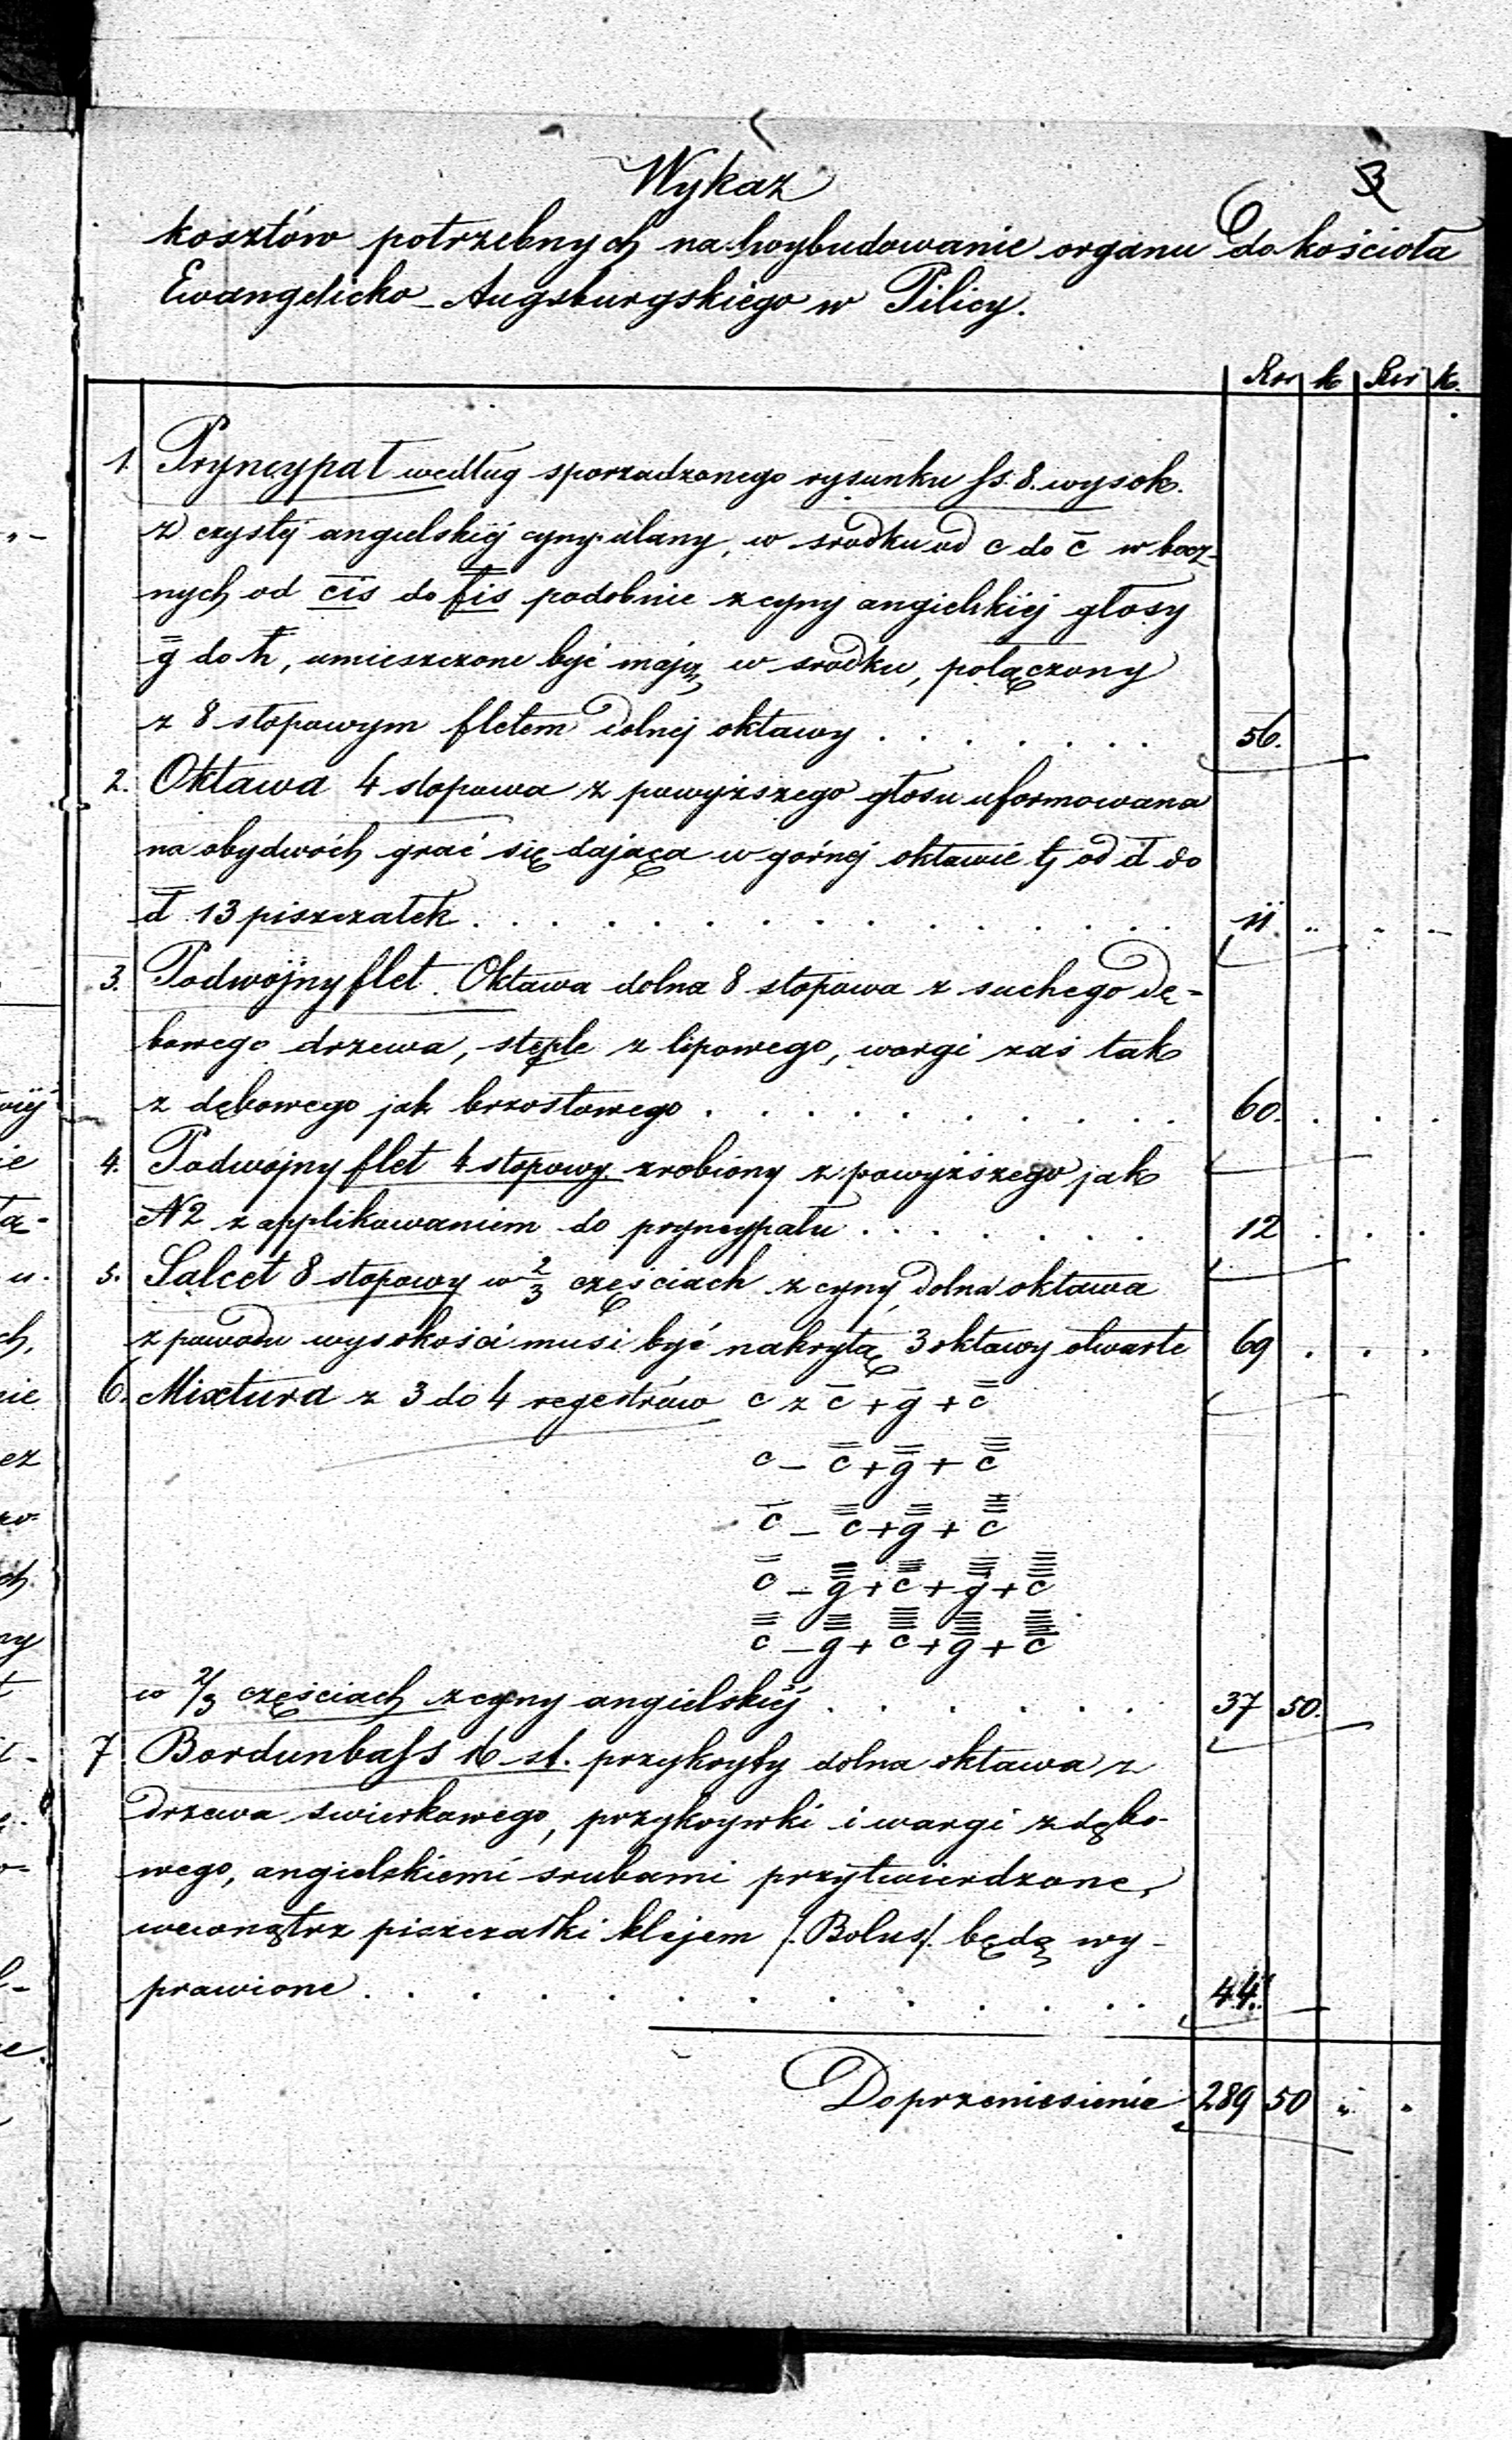 3
Wykaz
kosztów potrzebnych na wybudowanie organu do kościoła
Ewangelicko-Augsburgskiego w Pilicy.
Rsr k Rsr k.
1. Pryncypał według sporzadzonego rysunku ss. 8. wysok.
z czystéj angielskiéj cyny ulany, w srodku od c do c̄ w bocz-
nych od c̄is do f̿is podobnie z cyny angielskiéj głosy
g̿ do h̿, umieszczone być mają w srodku, połączony
z 8 stopowym fletem dolnej oktawy . . . . . . . 56.
2. Oktawa 4 stopowa z powyższego głosu uformowana
na obydwóch grać się dająca w górnéj oktawie tj od d̄ do
d̿ 13 piszczałek . . . . . . . . . . . 11 " " "
3. Podwójny flet. Oktawa dolna 8 stopowa z suchego dę-
bowego drzewa, stęple z lipowego, wargi zaś tak
z dębowego jak brzostowego . . . . . . . . 60. . . .
4. Podwójny flet 4 stopowy zrobiony z powyższego jak
N 2 z applikowaniem do pryncypału . . . . . . 12 . . .
5. Salcet 8 stopowy w 2/3 częściach z cyny, dolna oktawa
z powodu wysokości musi być nakrytą 3 oktawy otwarte 69 . . .
6. Mixtura z 3 do 4 regestrów c z c̄ + ḡ + c̿
c – c̿ + g̿ + c̿̄
c̄ – c̿ + g̿ + c̿̿
c̿ – g̿ + c̿̄ + g̿̄ + c̿̿
c̿̄ – g̿̄ + c̿̿ + g̿̿ + c̿̿̄
w 2/3 częściach z cyny angielskiéj . . . . . . 37 50.
7 Bordunbass 16-st. przykryty dolna oktawa z
drzewa swierkowego, przykrywki i wargi z dębo-
wego, angielskiemi srubami przytwierdzone,
wewnątrz piszczałki klejem /.Bolus/. będą wy-
prawione . . . . . . . . . . . 44."
Do przeniesienia 289 50 " "